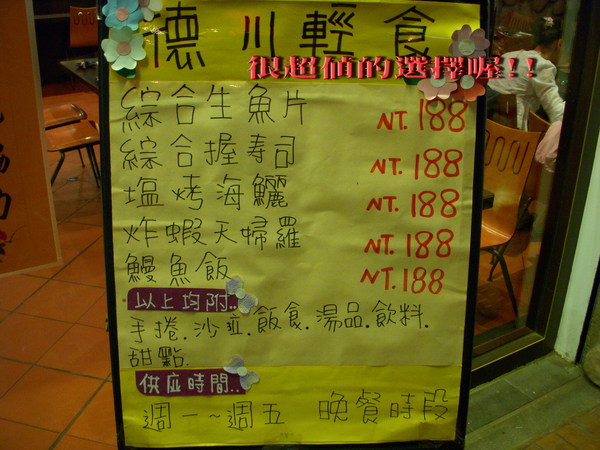 德川輕食
很超值的選擇喔!!
綜合生魚片 NT.188
綜合握壽司 NT.188
塩烤海鱺 NT.188
炸蝦天婦羅 NT.188
鰻魚飯 NT.188
以上均附..
手捲.沙拉.飯食.湯品.飲料.
甜點.
供应時間...
週一~週五 晚餐時段